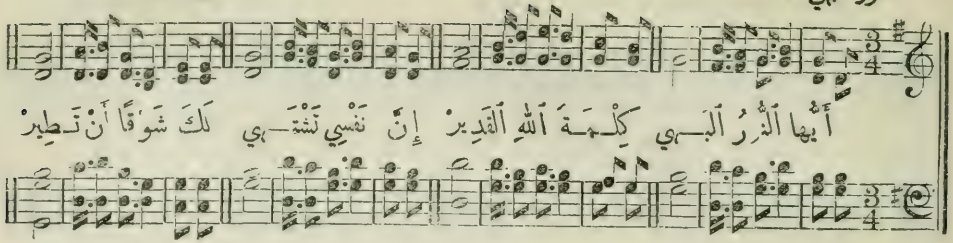 أَيُّها ٱلنُّورُ ٱلبَـهِي كِلْـمَـةَ ٱللهِ ٱلقَدِيرْ إِنَّ نَفْسِي تَشْتَـهِي لَكَ شَوْقًا أَنْ تَـطِيرْ